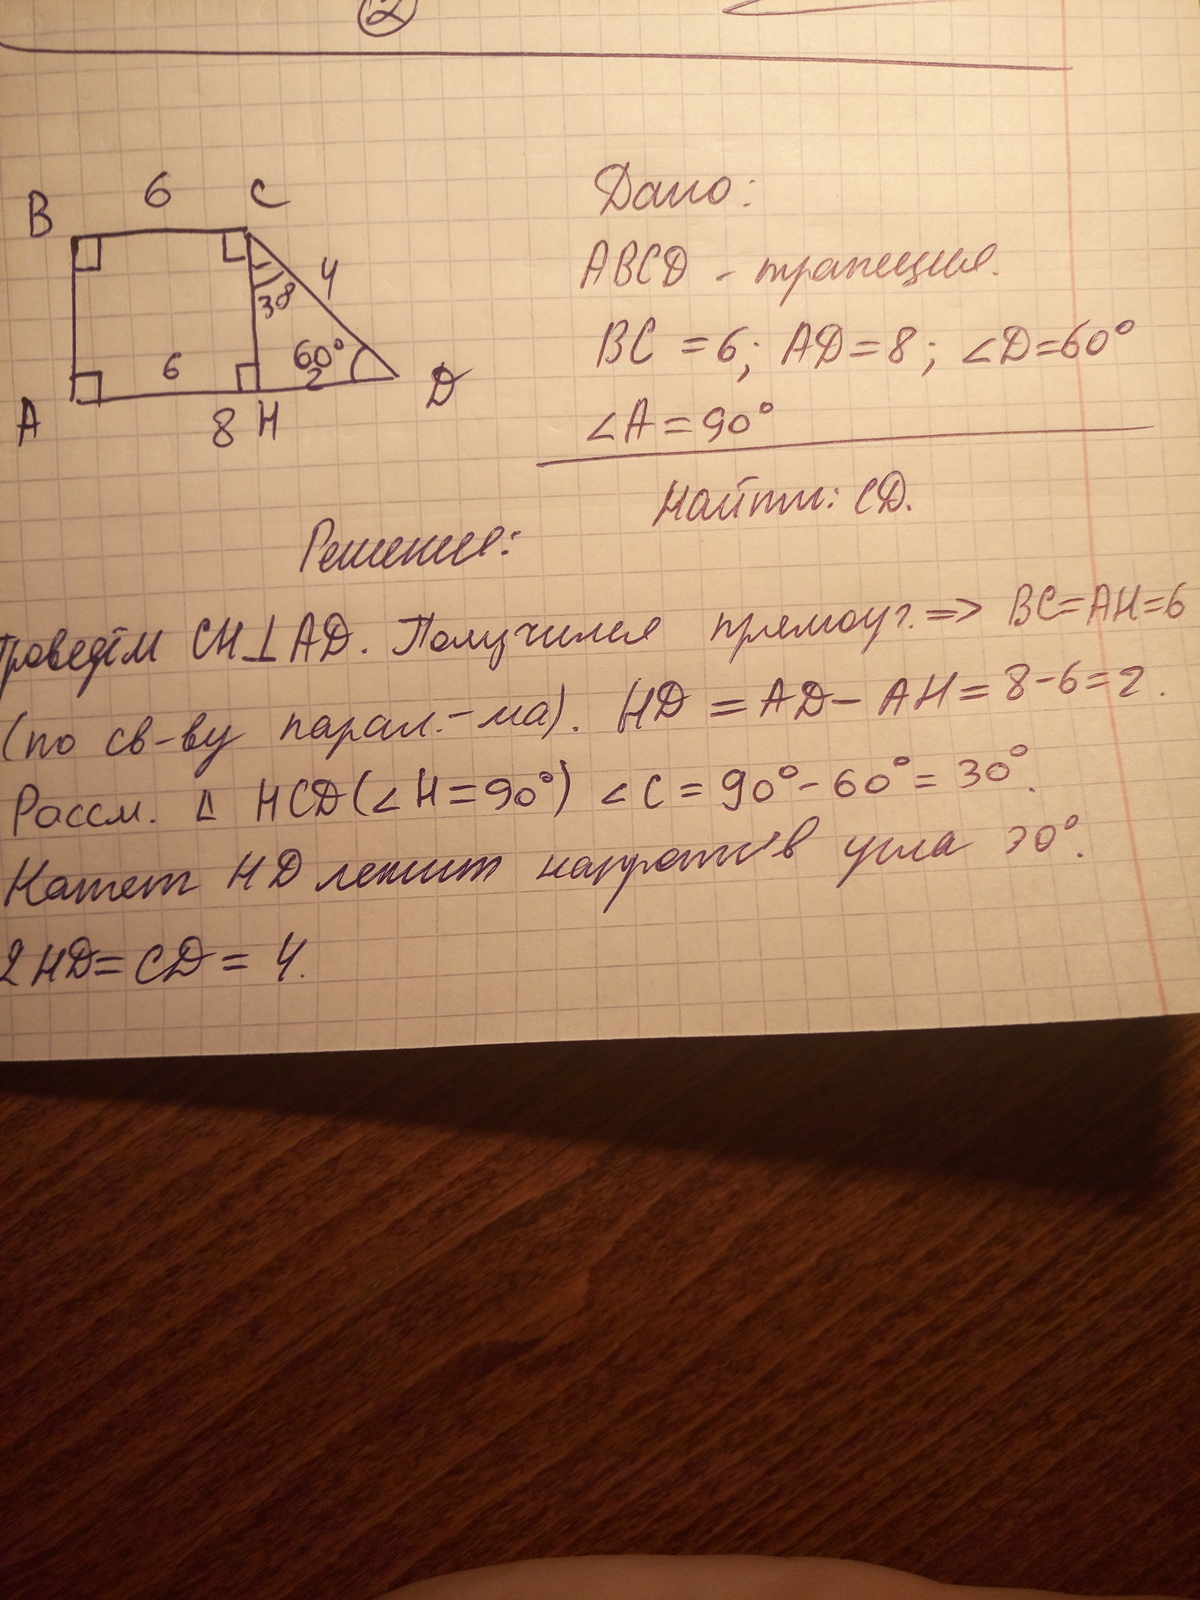 2
6
B
C
4
30°
60°
6
2
A
8
H
D
Дано:
ABCD - трапеция.
BC = 6; AD = 8; ∠D=60°
∠A = 90°
Найти: CD.
Решение:
Проведём CH⊥AD. Получился прямоуг. => BC=AH=6
(по св-ву парал.-ма). HD = AD - AH = 8-6=2.
Рассм. Δ HCD (∠H=90°) ∠C = 90°-60°= 30°.
Катет HD лежит напротив угла 30°.
2HD = CD = 4.